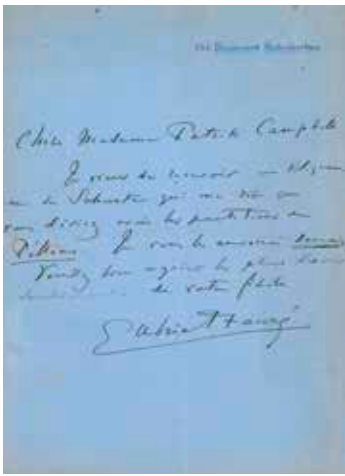 154 Boulevard Malesherbes
Chère Madame Patrick Campbell
Je viens de recevoir un télégram
me de Schuster qui me dit que
vous désirez avoir les partitions de
Pelléas. Je vous les enverrai demain
Veuillez bien agréer les plus
de votre fidèle
Gabriel Fauré